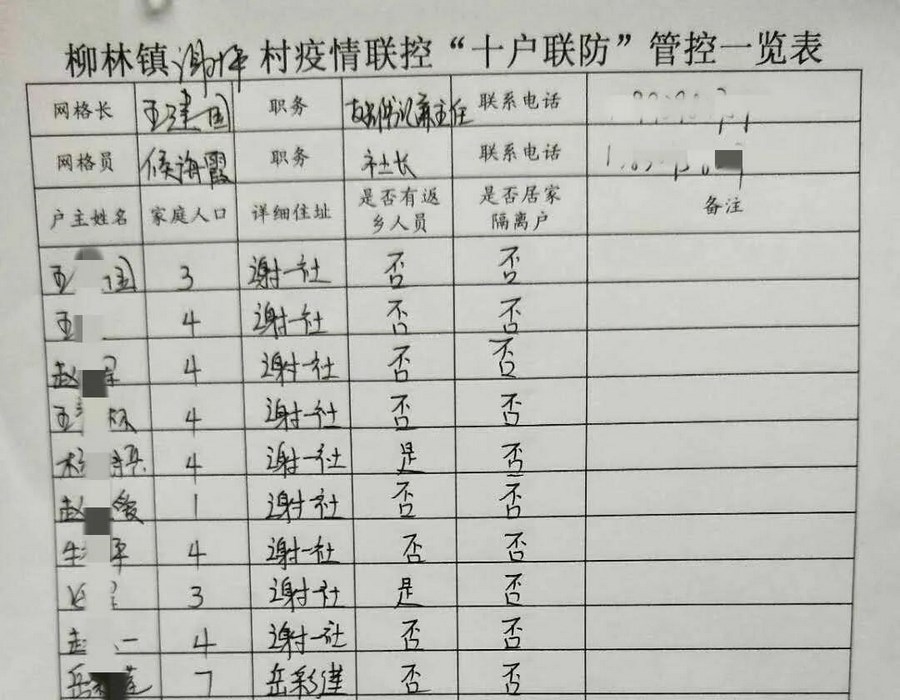 柳林镇谢坪村疫情联控“十户联防”管控一览表
网格长 王建国 职务 支部书记兼主任 联系电话
网格员 侯海霞 职务 社长 联系电话
户主姓名 家庭人口 详细住址 是否有返乡人员 是否居家隔离户 备注
王 国 3 谢一社 否 否
王 4 谢一社 否 否
赵 4 谢一社 否 否
王 4 谢一社 否 否
杨 4 谢一社 是 否
赵 爱 1 谢社 否 否
牛 平 4 谢一社 否 否
3 谢一社 是 否
一 4 谢一社 否 否
岳 莲 7 岳彩莲 否 否